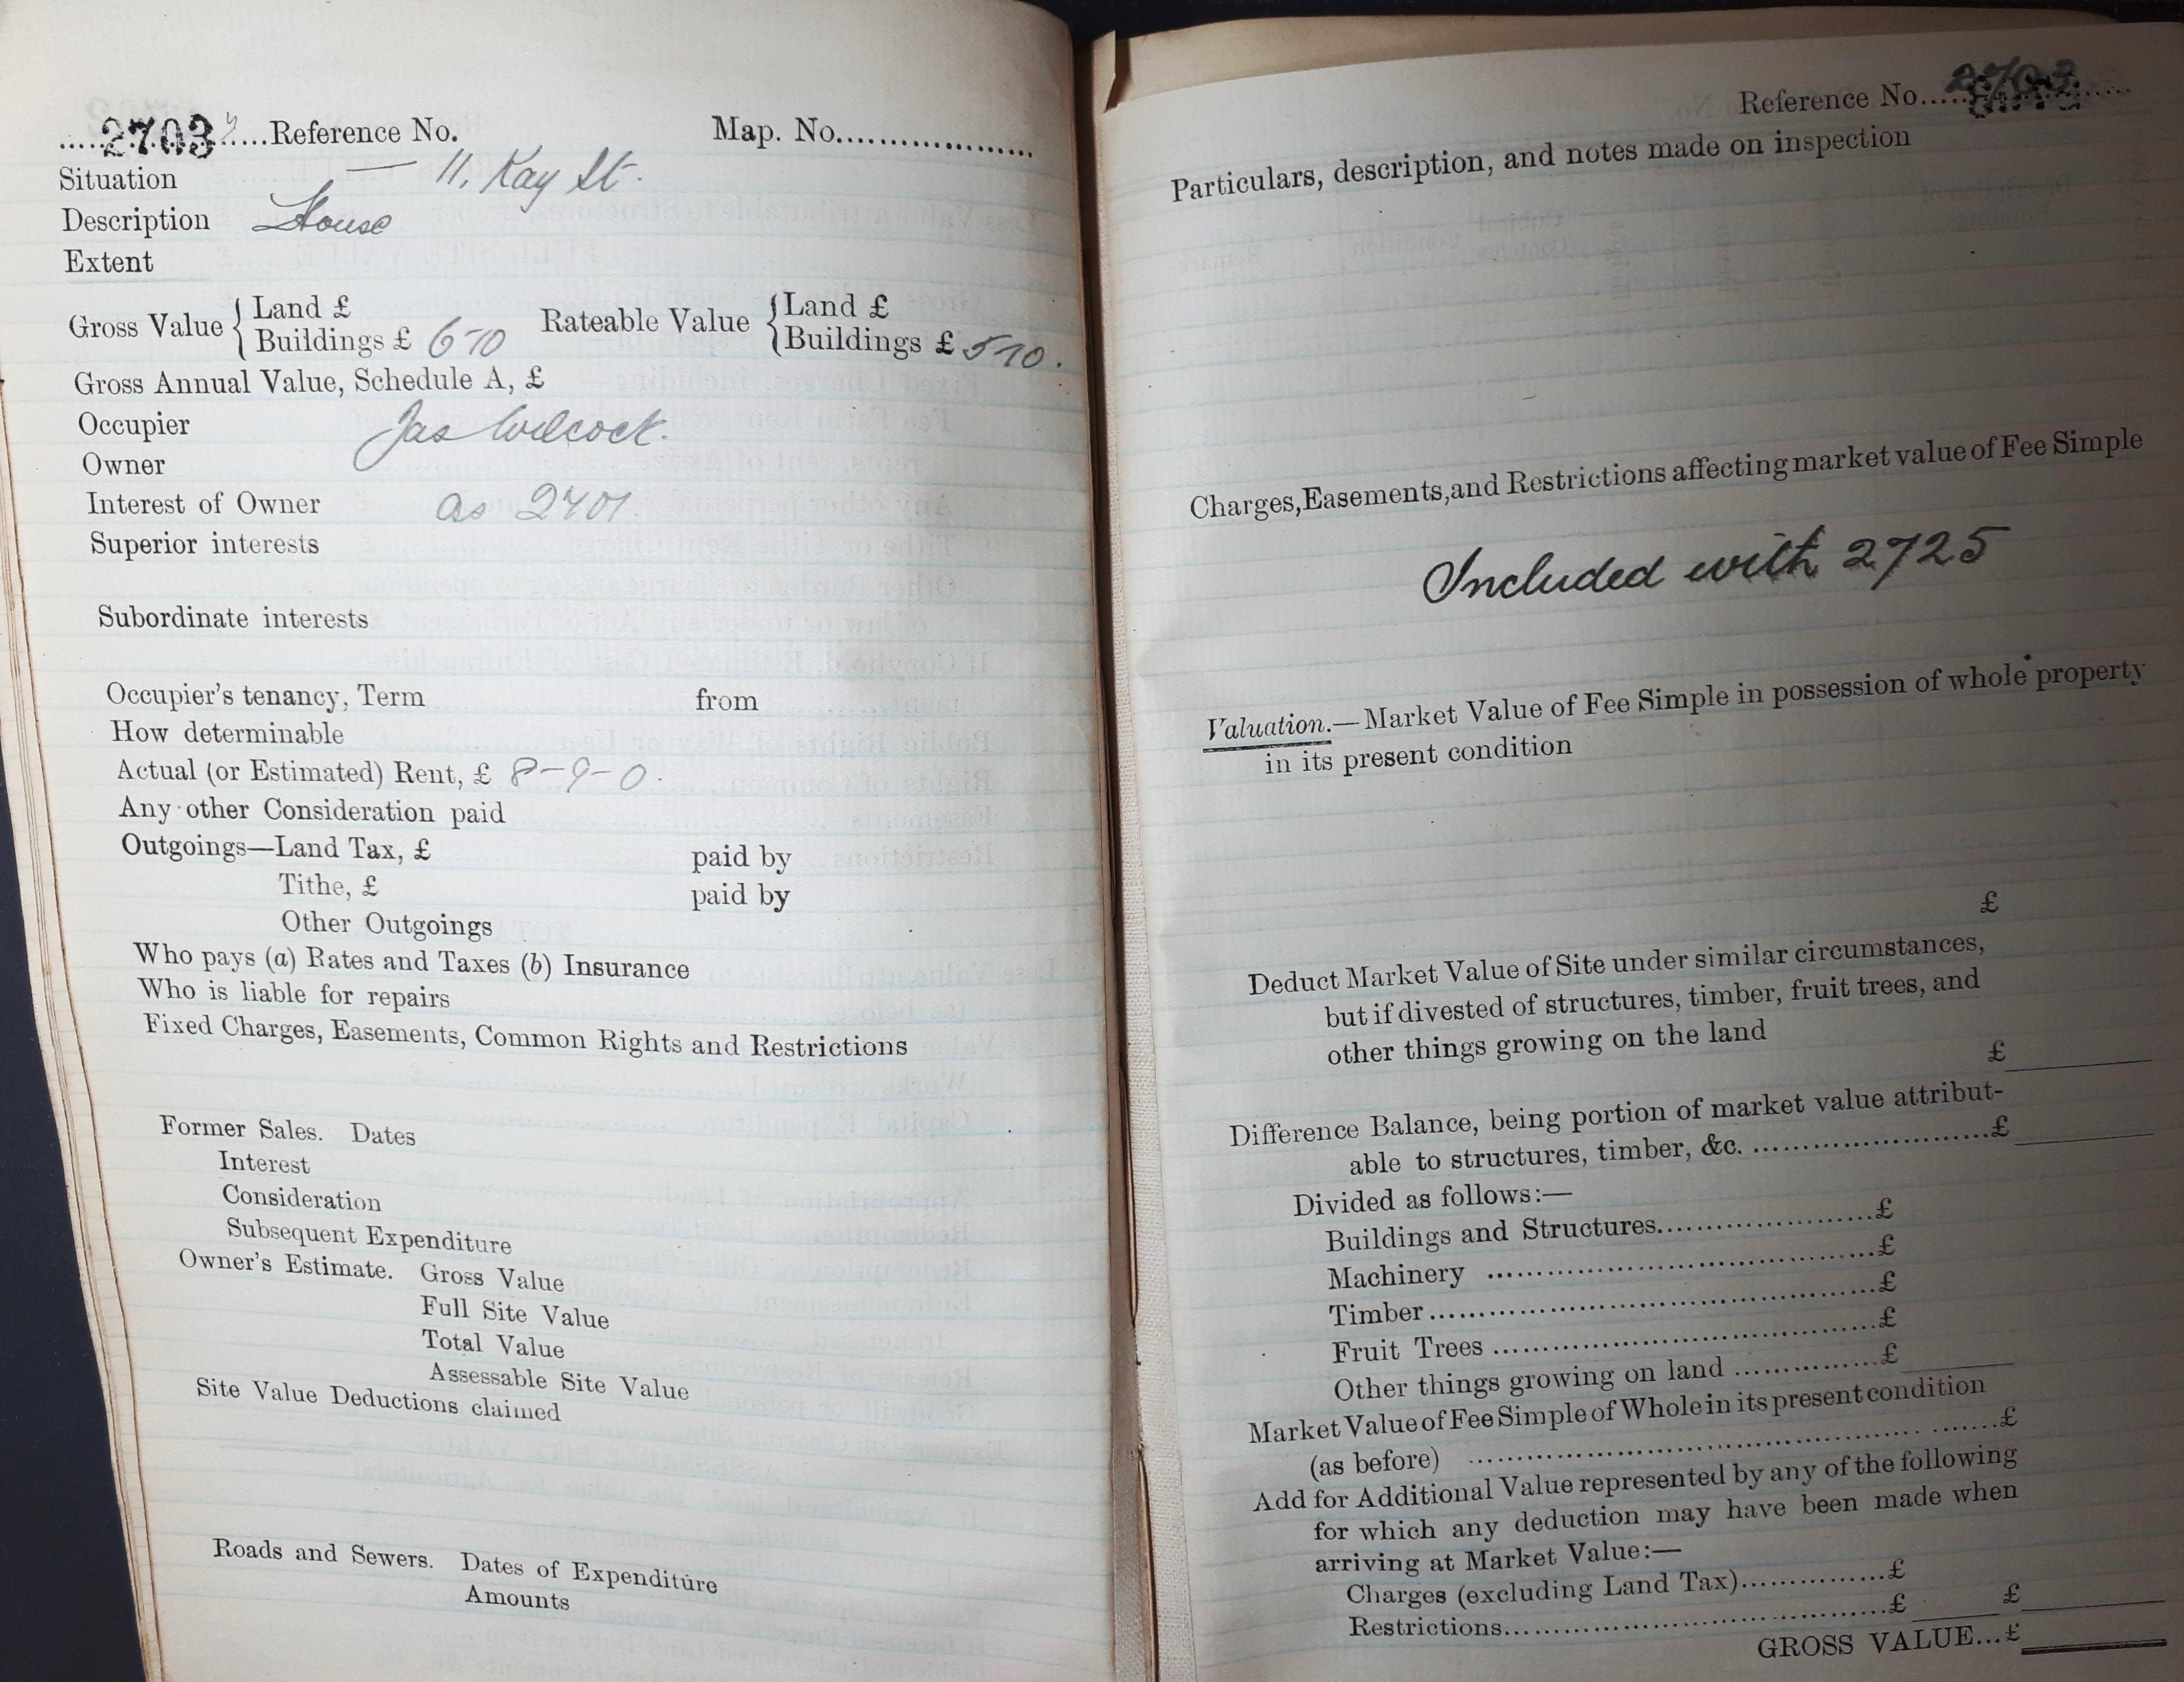 .....2703.....Reference No. Map. No....................
Situation — 11. Kay St.
Description House
Extent
Gross Value { Land £ Rateable Value { Land £
Buildings £ 6-10 Buildings £ 5-10.
Gross Annual Value, Schedule A, £
Occupier Jas Wilcock.
Owner
Interest of Owner as 2701.
Superior interests
Subordinate interests
Occupier's tenancy, Term from
How determinable
Actual (or Estimated) Rent, £ 8-9-0.
Any other Consideration paid
Outgoings—Land Tax, £ paid by
Tithe, £ paid by
Other Outgoings
Who pays (a) Rates and Taxes (b) Insurance
Who is liable for repairs
Fixed Charges, Easements, Common Rights and Restrictions
Former Sales. Dates
Interest
Consideration
Subsequent Expenditure
Owner's Estimate. Gross Value
Full Site Value
Total Value
Assessable Site Value
Site Value Deductions claimed
Roads and Sewers. Dates of Expenditure
Amounts
Reference No.....2703.....
Particulars, description, and notes made on inspection
Charges, Easements, and Restrictions affecting market value of Fee Simple
Included with 2725
Valuation.—Market Value of Fee Simple in possession of whole property
in its present condition
£
Deduct Market Value of Site under similar circumstances,
but if divested of structures, timber, fruit trees, and
other things growing on the land
£
Difference Balance, being portion of market value attribut-
able to structures, timber, &c. ..........................£
Divided as follows:—
Buildings and Structures........................£
Machinery ..........................................£
Timber................................................£
Fruit Trees ..........................................£
Other things growing on land ................£
Market Value of Fee Simple of Whole in its present condition
(as before) ..........................................................£
Add for Additional Value represented by any of the following
for which any deduction may have been made when
arriving at Market Value:—
Charges (excluding Land Tax)................£
Restrictions..........................................£ £
GROSS VALUE...£